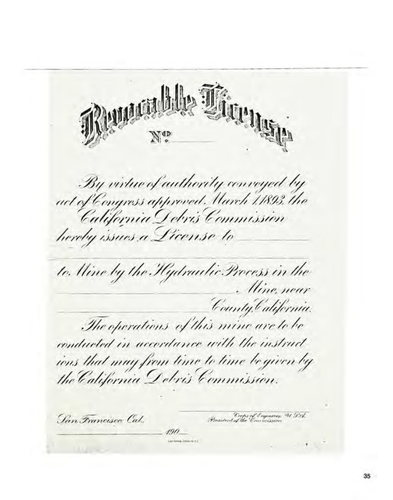 Revocable License
No.
By virtue of authority conveyed by
act of Congress approved March 1, 1893, the
California Debris Commission
hereby issues a License to
to Mine by the Hydraulic Process in the
Mine, near
County, California.
The operations of this mine are to be
conducted in accordance with the instruct
ions that may from time to time be given by
the California Debris Commission.
San Francisco Cal.
Corps of Engineers, U.S.A.
President of the Commission
190
35